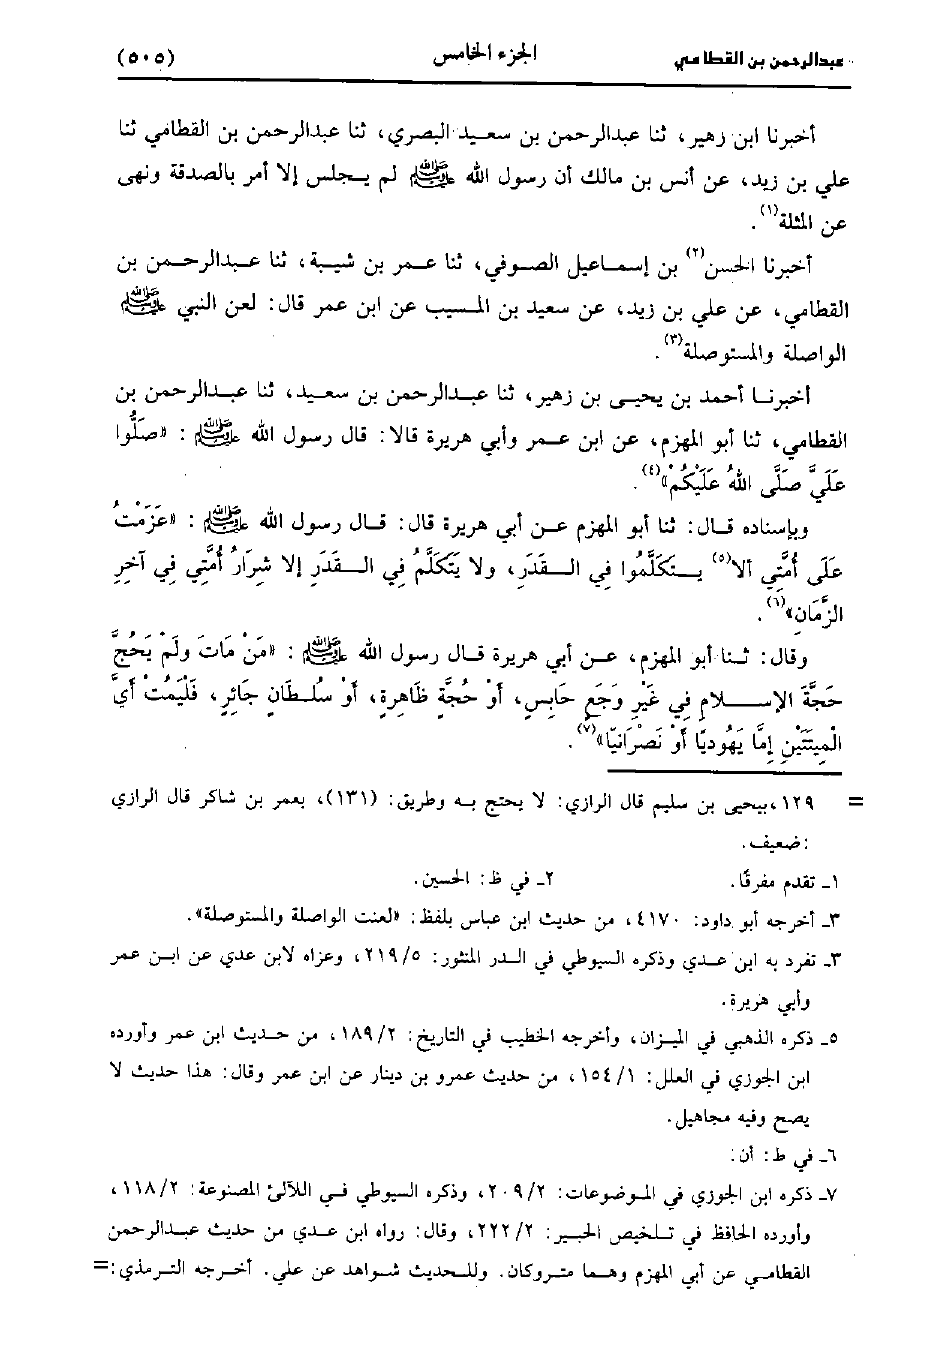 عبدالرحمن بن القطامي
الجزء الخامس
(٥٠٥)
أخبرنا ابن زهير، ثنا عبدالرحمن بن سعيد البصري، ثنا عبدالرحمن بن القطامي ثنا
علي بن زيد، عن أنس بن مالك أن رسول الله ﷺ لم يجلس إلا أمر بالصدقة ونهى
عن المثلة(١).
أخبرنا الحسن(٢) بن إسماعيل الصوفي، ثنا عمر بن شيبة، ثنا عبدالرحمن بن
القطامي، عن علي بن زيد، عن سعيد بن المسيب عن ابن عمر قال: لعن النبي ﷺ
الواصلة والمستوصلة(٣).
أخبرنا أحمد بن يحيى بن زهير، ثنا عبدالرحمن بن سعيد، ثنا عبدالرحمن بن
القطامي، ثنا أبو المهزم، عن ابن عمر وأبي هريرة قالا: قال رسول الله ﷺ : «صَلُّوا
عَلَيَّ صَلَّى اللهُ عَلَيْكُمْ»(٤).
وبإسناده قال: ثنا أبو المهزم عن أبي هريرة قال: قال رسول الله ﷺ : «عَزَمْتُ
عَلَى أُمَّتِي ألا(٥) يتكَلَّمُوا فِي القَدَرِ، ولا يَتَكَلَّمُ فِي القَدَرِ إلا شِرَارُ أُمَّتِي فِي آخِرِ
الزَّمَانِ»(٦).
وقال: ثنا أبو المهزم، عن أبي هريرة قال رسول الله ﷺ : «مَنْ مَاتَ ولَمْ يَحُجَّ
حَجَّةَ الإسلامِ فِي غَيْرِ وَجَعٍ حَابِسٍ، أوْ حُجَّةٍ ظَاهِرةٍ، أوْ سُلطَانٍ جَائِرٍ، فَليَمُتْ أيَّ
الْمِيتَتَيْنِ إمَّا يَهُودِيًا أوْ نَصْرَانِيًا»(٧).
= ١٢٩،بيحيى بن سليم قال الرازي: لا يحتج به وطريق: (١٣١)، بعمر بن شاكر قال الرازي
: ضعيف.
١ـ تقدم مفرقًا.
٢ـ في ظ: الحسين.
٣ـ أخرجه أبو داود: ٤١٧٠، من حديث ابن عباس بلفظ: «لعنت الواصلة والمستوصلة».
٣ـ تفرد به ابن عدي وذكره السيوطي في الدر المنثور: ٢١٩/٥، وعزاه لابن عدي عن ابن عمر
وأبي هريرة.
٥ـ ذكره الذهبي في الميزان، وأخرجه الخطيب في التاريخ: ١٨٩/٢، من حديث ابن عمر وأورده
ابن الجوزي في العلل: ١٥٤/١، من حديث عمرو بن دينار عن ابن عمر وقال: هذا حديث لا
يصح وفيه مجاهيل.
٦ـ في ط: أن:
٧ـ ذكره ابن الجوزي في الموضوعات: ٢٠٩/٢، وذكره السيوطي في اللآلئ المصنوعة: ١١٨/٢،
وأورده الحافظ في تلخيص الحبير: ٢٢٢/٢، وقال: رواه ابن عدي من حديث عبدالرحمن
القطامي عن أبي المهزم وهما متروكان. وللحديث شواهد عن علي. أخرجه الترمذي:=